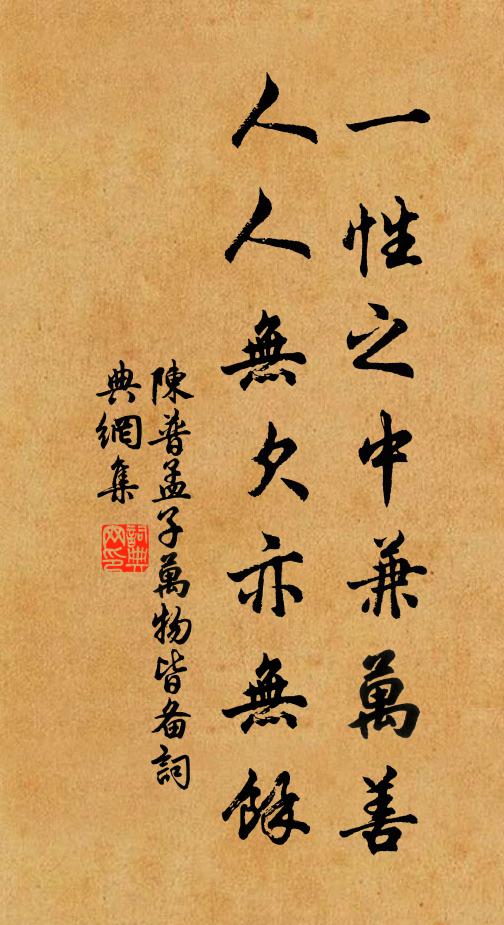 一性之中兼萬善
人人無欠亦無餘
陳普孟子萬物皆备詞
典網集
詞典
网印